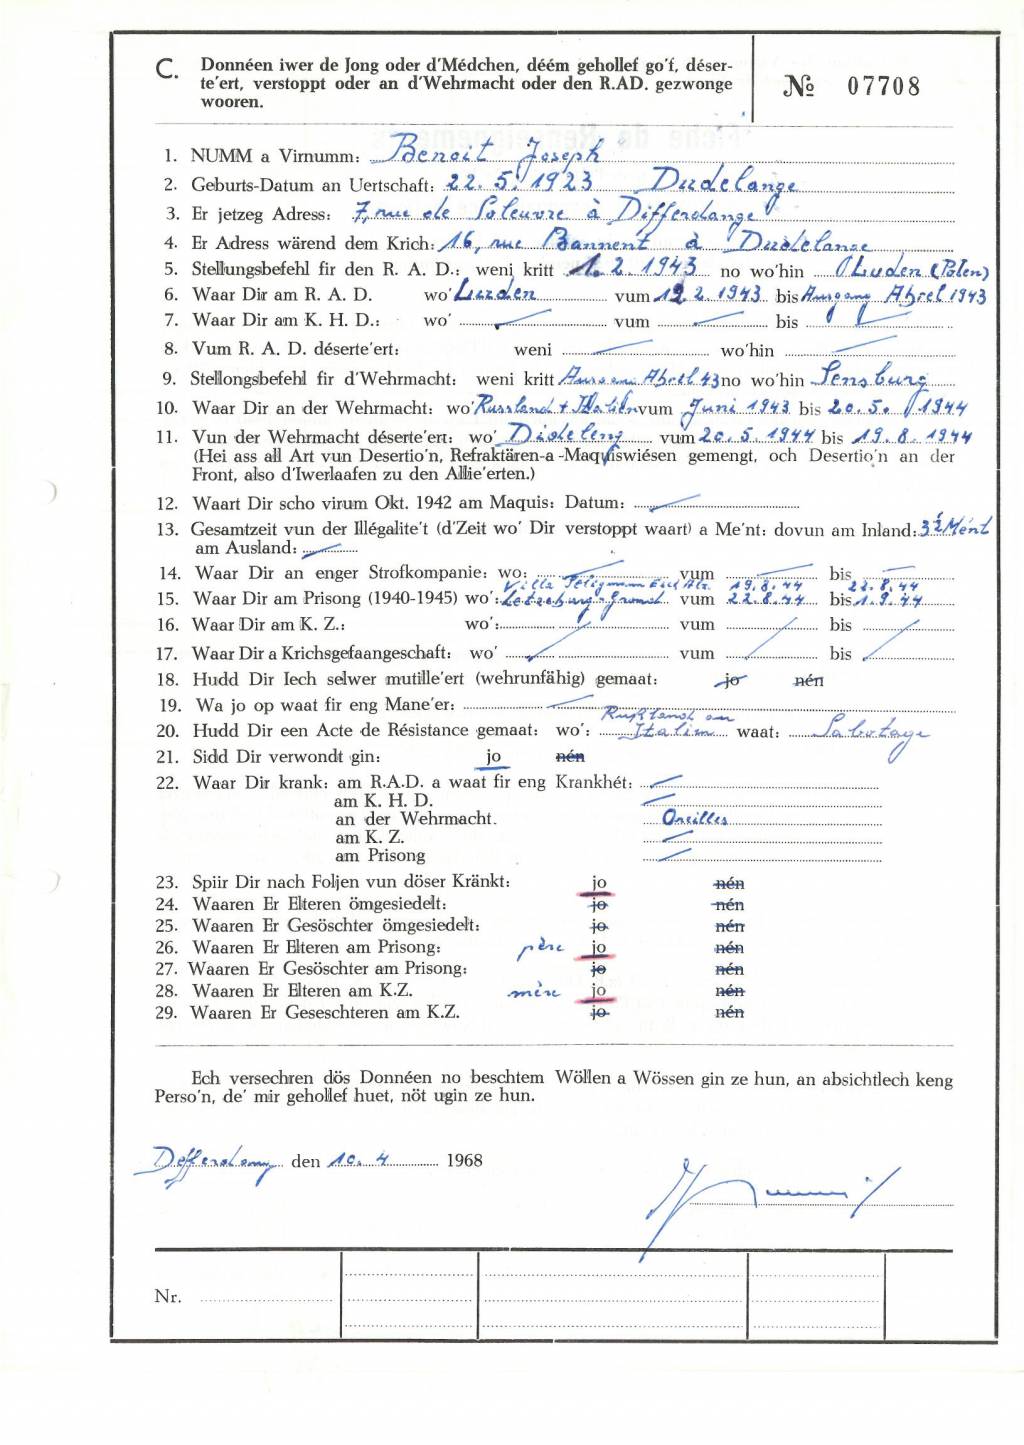 C. Donnéen iwer de Jong oder d'Médchen, déém gehollef go'f, déser-
te'ert, verstoppt oder an d'Wehrmacht oder den R.AD. gezwonge
wooren.
№ 07708
1. NUMM a Virnumm: Benoit Joseph
2. Geburts-Datum an Uertschaft: 22. 5. 1923 Dudelange
3. Er jetzeg Adress: 7, rue de Soleuvre à Differdange
4. Er Adress wärend dem Krich: 16, rue Bannent à Dudelange
5. Stellungsbefehl fir den R. A. D.: weni kritt 1. 2. 1943 no wo'hin Luden (Polen)
6. Waar Dir am R. A. D. wo' Luden vum 12 2. 1943 bis Ausgang Abrel 1943
7. Waar Dir am K. H. D.: wo' vum bis
8. Vum R. A. D. déserte'ert: weni wo'hin
9. Stellongsbefehl fir d'Wehrmacht: weni kritt Abrel 43 no wo'hin Sensburg
10. Waar Dir an der Wehrmacht: wo' Russland + Italien vum Juni 1943 bis 20. 5. 1944
11. Vun der Wehrmacht déserte'ert: wo' Dideleng vum 20. 5. 1944 bis 19. 8. 1944
(Hei ass all Art vun Desertio'n, Refraktären-a -Maquiswiésen gemengt, och Desertio'n an der
Front, also d'Iwerlaafen zu den Allie'erten.)
12. Waart Dir scho virum Okt. 1942 am Maquis: Datum:
13. Gesamtzeit vun der Illégalite't (d'Zeit wo' Dir verstoppt waart) a Me'nt: dovun am Inland: 3½ Ment
am Ausland:
14. Waar Dir an enger Strofkompanie: wo: vum bis
Villa 19.8.44 22.8.44
15. Waar Dir am Prisong (1940-1945) wo': Letzeburg-Grond vum 22.8.44 bis 1.9.44
16. Waar Dir am K. Z.: wo': vum bis
17. Waar Dir a Krichsgefaangeschaft: wo' vum bis
18. Hudd Dir Iech selwer mutille'ert (wehrunfähig) gemaat: jo nén
19. Wa jo op waat fir eng Mane'er:
Rußland an
20. Hudd Dir een Acte de Résistance gemaat: wo': Italien waat: Sabotage
21. Sidd Dir verwondt gin: jo nén
22. Waar Dir krank: am R.A.D. a waat fir eng Krankhét:
am K. H. D.
an der Wehrmacht. Oreilles
am K. Z.
am Prisong
23. Spiir Dir nach Foljen vun döser Kränkt: jo nén
24. Waaren Er Elteren ömgesiedelt: jo nén
25. Waaren Er Gesöschter ömgesiedelt: jo nén
26. Waaren Er Elteren am Prisong: père jo nén
27. Waaren Er Gesöschter am Prisong: jo nén
28. Waaren Er Elteren am K.Z. mère jo nén
29. Waaren Er Geseschteren am K.Z. jo nén
Ech versechren dös Donnéen no beschtem Wöllen a Wössen gin ze hun, an absichtlech keng
Perso'n, de' mir gehollef huet, nöt ugin ze hun.
Differdang den 10. 4 1968
Nr.